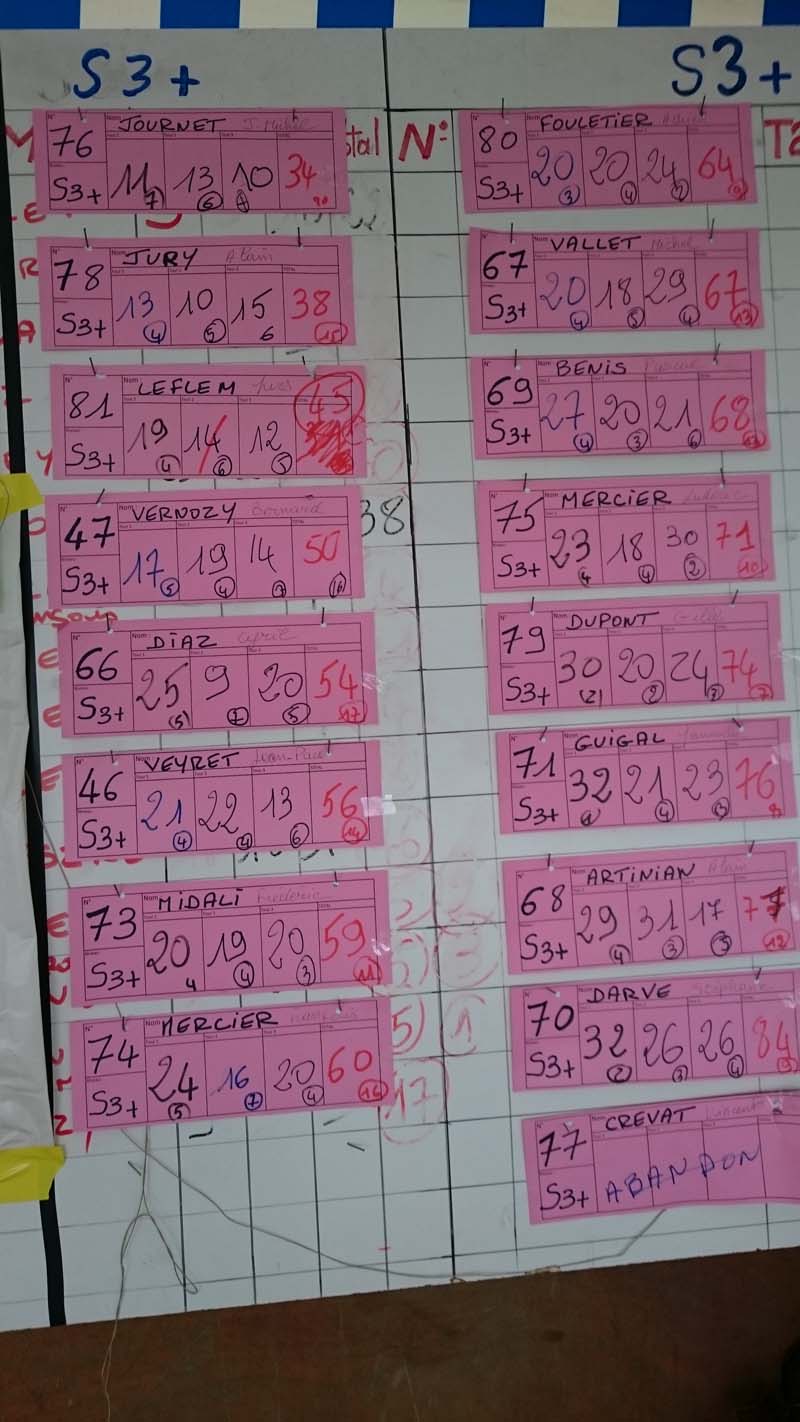 S3+
76 JOURNET J. Michel
S3+ 11 7 13 6 10 34
78 JURY Alain
S3+ 13 4 10 5 15 6 38 15
81 LEFLEM Yves 45
S3+ 19 4 14 6 12 5
47 VERNOZY Bernard
S3+ 17 5 19 4 14 7 50 16
38
66 DIAZ Cyril
S3+ 25 5 9 7 20 5 54 17
46 VEYRET Jean-Paul
S3+ 21 4 22 4 13 6 56 14
73 MIDALI Frederic
S3+ 20 4 19 4 20 3 59 11
74 MERCIER
S3+ 24 5 16 7 20 4 60 16
S3+
N°
80 FOULETIER
S3+ 20 3 20 4 24 64
67 VALLET Michel
S3+ 20 4 18 5 29 4 67 13
69 BENIS Pascal
S3+ 27 4 20 3 21 6 68
75 MERCIER Ludovic
S3+ 23 4 18 4 30 2 71 10
79 DUPONT Gilles
S3+ 30 (2) 20 2 24 74
71 GUIGAL
S3+ 32 21 4 23 76
68 ARTINIAN Alain
S3+ 29 4 31 3 17 5 77 12
70 DARVE Stéphane
S3+ 32 2 26 3 26 4 84
77 CREVAT Vincent
S3+ ABANDON